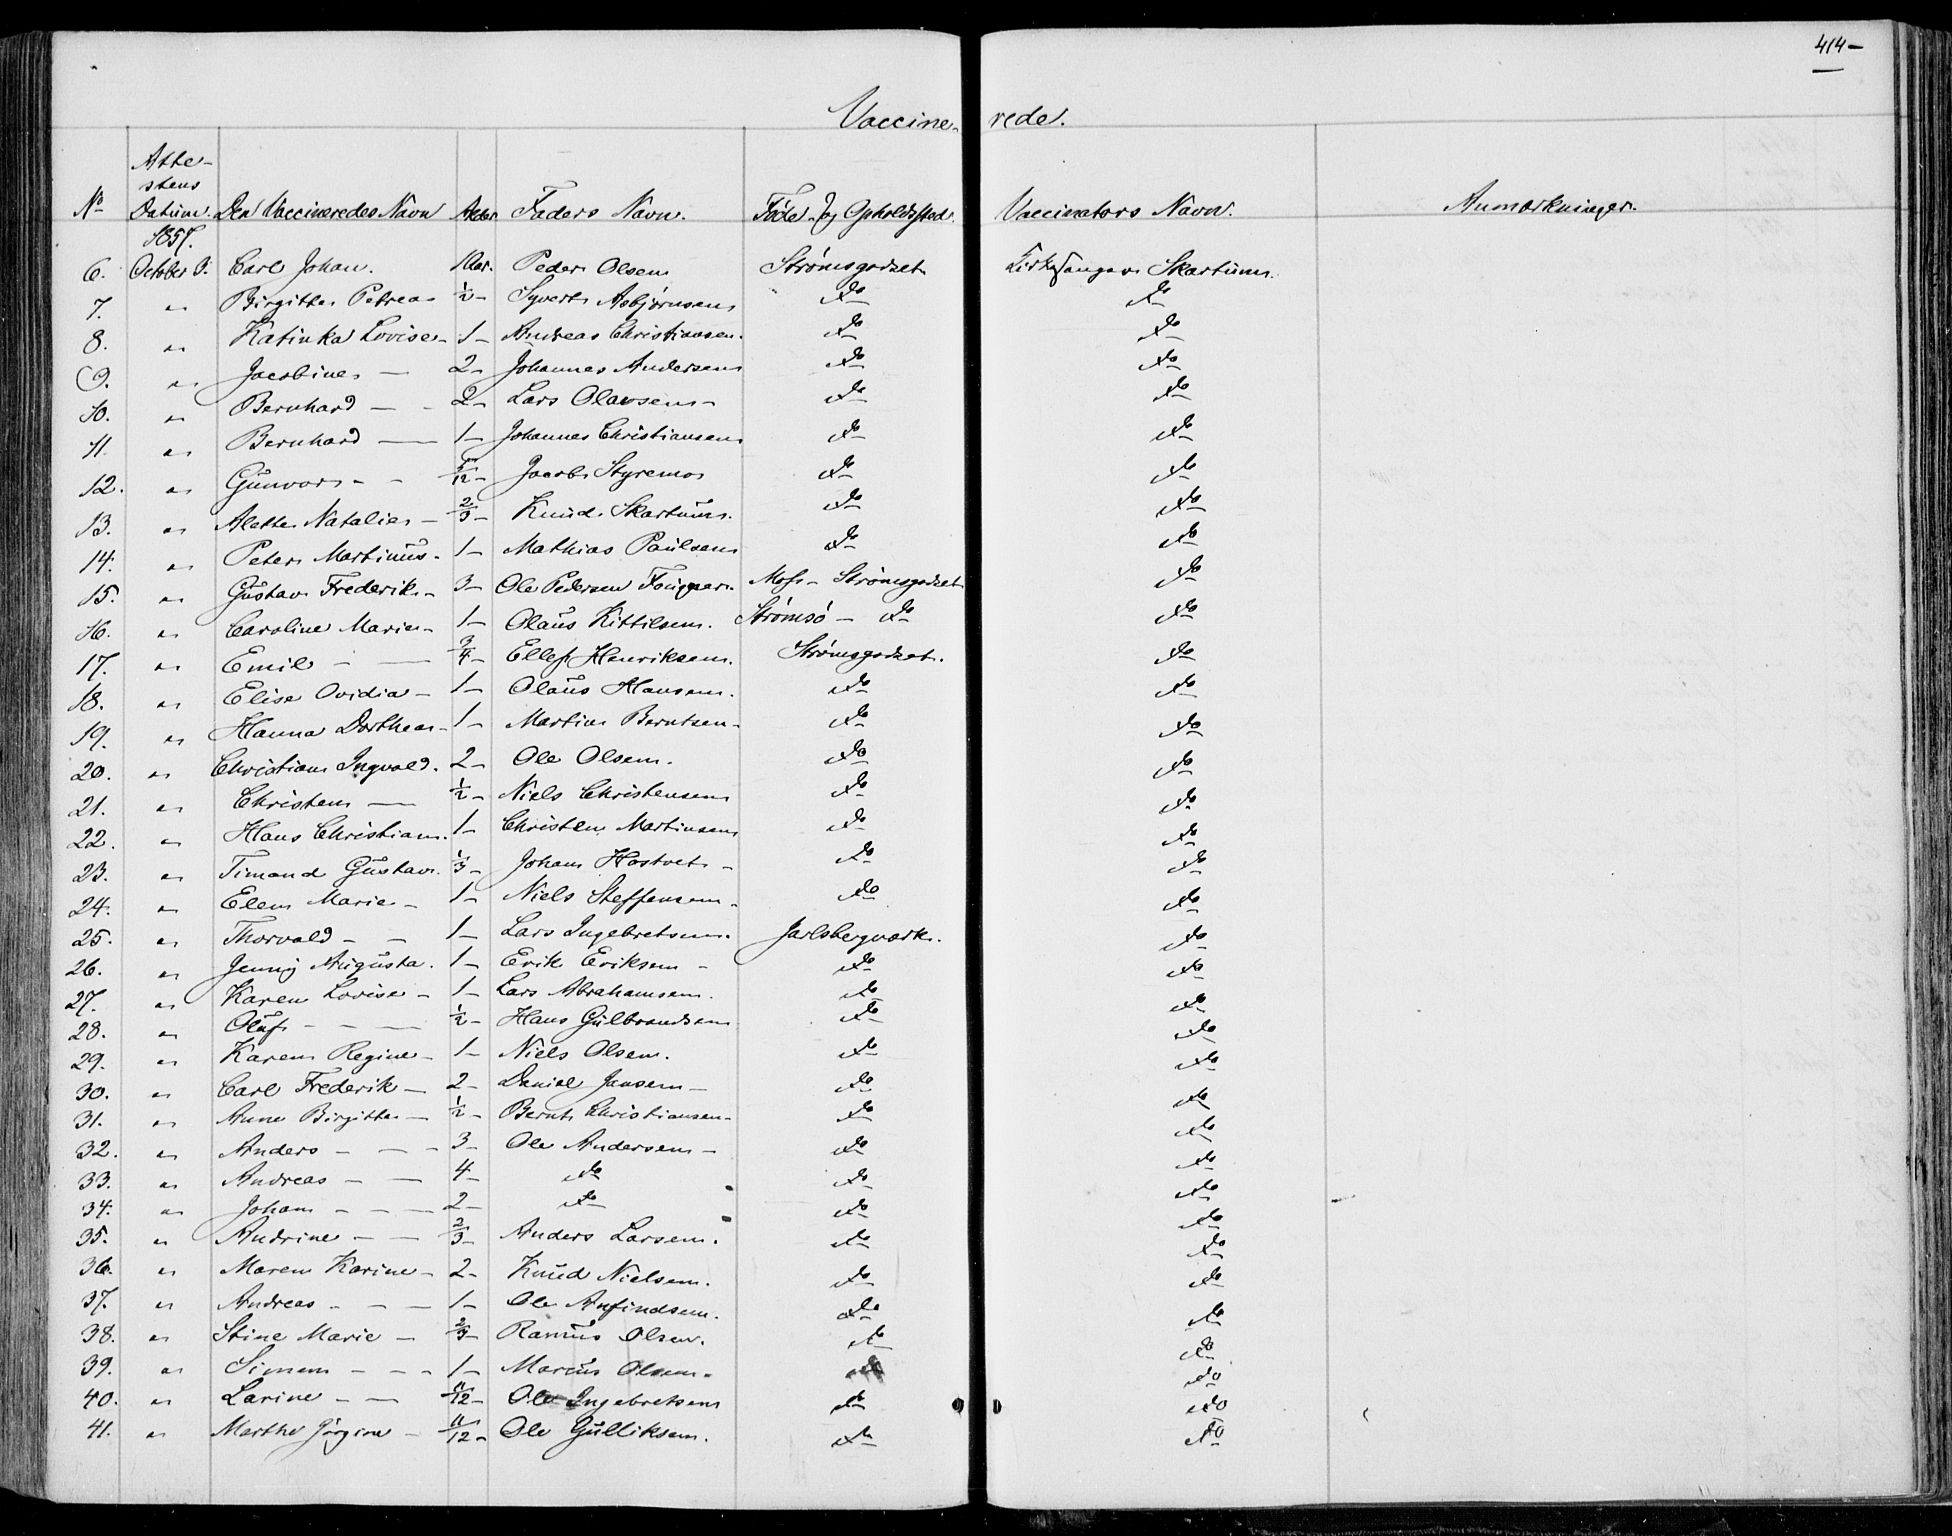 414-
Vaccine- rede.
Atte-
stens
No Datum. Den Vaccineredes Navn Alder. Faders Navn. Føde- og Opholdssted. Vaccinators Navn. Anmærkninger.
1857.
6. October 9. Carl Johan. 1 Aar. Peder Olsen Strømsgodset Kirkesanger Skartum.
7. " Birgitte Petrea 1/2 - Syvert Asbjørnsen do do
8. " Katinka Lovise - 1 - Andreas Christiansen. do do
9. " Jacobine - 2 - Johannes Andersen do do
10. " Bernhard - - 2 - Lars Olavsen - do do
11. " Bernhard - 1 - Johannes Christiansen do do
12. " Gunvor - - /12 - Jacob Styremo do do
13. " Alette Natalie - 2/3 - Knud Skartum. do do
14. " Peter Martinus - 1 - Mathias Paulsen do do
15. " Gustav Frederik - 3 - Ole Pedersen Moss - Strømsgodset do
16. " Caroline Marie - 1 - Olaus Kittilsen. Strømsø - do do
17. " Emil - - 3/4 - Ellef Henriksen. Strømsgodset. do
18. " Elise Ovidia - 1 - Olaus Hansen. do do
19. " Hanna Dorthea - 1 - Martin Berntsen - do do
20. " Christian Ingvald. 2 - Ole Olsen. do do
21. " Christen - 1/2 - Niels Christensen do do
22. " Hans Christian. 1 - Christen Martinsen do do
23. " Timand Gustav. 1/3 - Johan Hostvet - do do
24. " Elen Marie - 1 - Niels Steffensen - do do
25. " Thorvald - - 1 - Lars Ingebretsen. Jarlsbergværk. do
26. " Jenny Augusta. 1 - Erik Eriksen - do do
27. " Karen Lovise - 1 - Lars Abrahamsen. do do
28. " Oluf - - - 1/2 - Hans Gulbrandsen do do
29. " Karen Regine - 1 - Niels Olsen. do do
30. " Carl Frederik - 2 - Daniel Jansen - do do
31. " Anne Birgitte - 1/2 - Bernt Christiansen - do do
32. " Anders - - - 3 - Ole Andersen - do do
33. " Andreas - - 4 - do do do
34. " Johan - - - 2 - do do do
35. " Andrine - - 2/3 - Anders Larsen. do do
36. " Maren Karine - 2 - Knud Nielsen. do do
37. " Andreas - - - 1 - Ole Anfindsen. do do
38. " Stine Marie - 2/3 - Ramus Olsen. do do
39. " Simen - - - 1 - Marcus Olsen. do do
40. " Larine - - 11/12 - Ole Ingebretsen do do
41. " Marthe Jørgine - 11/12 - Ole Gulliksen. do do